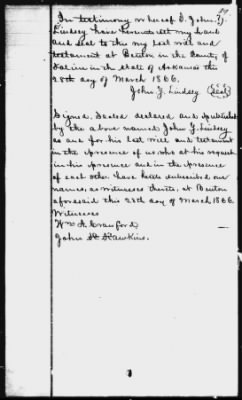 In testimony whereof I, John Y.
Lindsey have hereunto set my hand
and seal to this my last will and
testament at Benton in the County of
Saline in the State of Arkansas this
28th day of March 1866.
John Y. Lindsey (Seal)
Signed, Sealed declared and published
by the above named John Y. Lindsey
as and for his last will and testament
in the presence of us who at his request
in his presence and in the presence
of each other have hereto subscribed our
names, as witnesses thereto, at Benton
aforesaid this 28th day of March 1866.
Witnesses
Wm A. Crawford
John W. Hawkins.